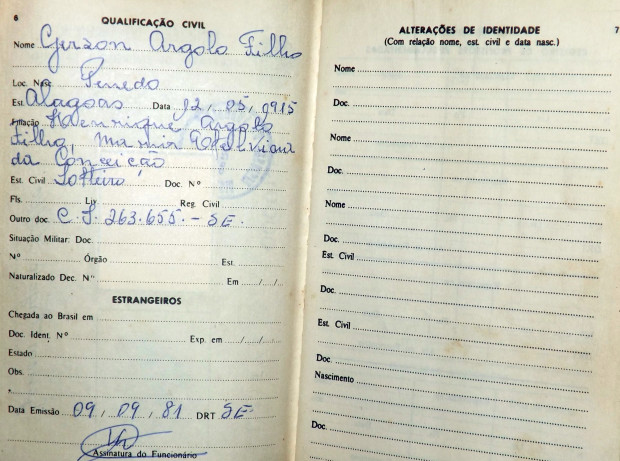 6
QUALIFICAÇÃO CIVIL
Nome Gerson Argolo Filho
Loc. Nasc. Penedo
Est. Alagoas Data 12, 05, 0915
Filiação Haenrique Argolo
Filho, Maria
da Conceição
Est. Civil Solteiro Doc. Nº
Fls. Liv. Reg. Civil
Outro doc. C. I. 263.655. - SE.
Situação Militar: Doc.
Nº Órgão Est.
Naturalizado Dec. Nº Em / /
ESTRANGEIROS
Chegada ao Brasil em
Doc. Ident. Nº Exp. em / /
Estado
Obs.
Data Emissão 09, 09, 81 DRT SE
Assinatura do Funcionário
7
ALTERAÇÕES DE IDENTIDADE
(Com relação nome, est. civil e data nasc.)
Nome
Doc.
Nome
Doc.
Nome
Doc.
Est. Civil
Doc.
Est. Civil
Doc.
Nascimento
Doc.